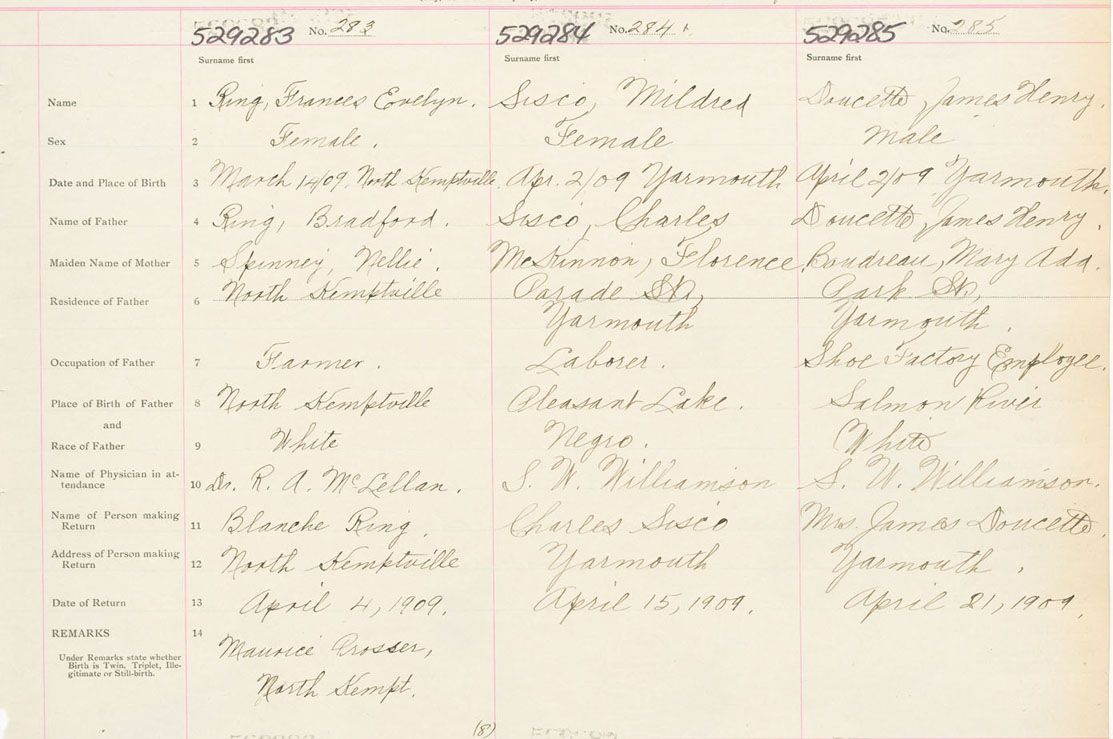 529283 No. 283 529284 No. 284 + 529285 No. 285
Surname first Surname first Surname first
Name 1 Ring, Frances Evelyn. Sisco, Mildred Doucette, James Henry.
Sex 2 Female. Female Male
Date and Place of Birth 3 March 14/09, North Kemptville. Apr. 2/09 Yarmouth April 2/09 Yarmouth.
Name of Father 4 Ring, Bradford. Sisco, Charles Doucette, James Henry.
Maiden Name of Mother 5 Spinney, Nellie. McKinnon, Florence. Boudreau, Mary Ada.
Residence of Father 6 North Kemptville Parade St., Park St.,
Yarmouth Yarmouth.
Occupation of Father 7 Farmer. Laborer. Shoe Factory Employee.
Place of Birth of Father 8 North Kemptville Pleasant Lake. Salmon River
and
Race of Father 9 White Negro. White
Name of Physician in at-
tendance 10 Dr. R. A. McLellan. S. W. Williamson S. W. Williamson.
Name of Person making
Return 11 Blanche Ring. Charles Sisco Mrs. James Doucette.
Address of Person making
Return 12 North Kemptville Yarmouth Yarmouth.
Date of Return 13 April 4, 1909. April 15, 1909. April 21, 1909.
REMARKS 14
Under Remarks state whether
Birth is Twin, Triplet, Ille-
gitimate or Still-birth.
Maurice Crosser,
North Kempt.
(8)